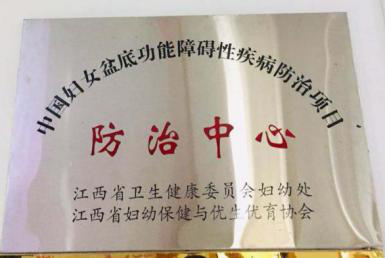 中国妇女盆底功能障碍性疾病防治项目
防治中心
江西省卫生健康委员会妇幼处
江西省妇幼保健与优生优育协会